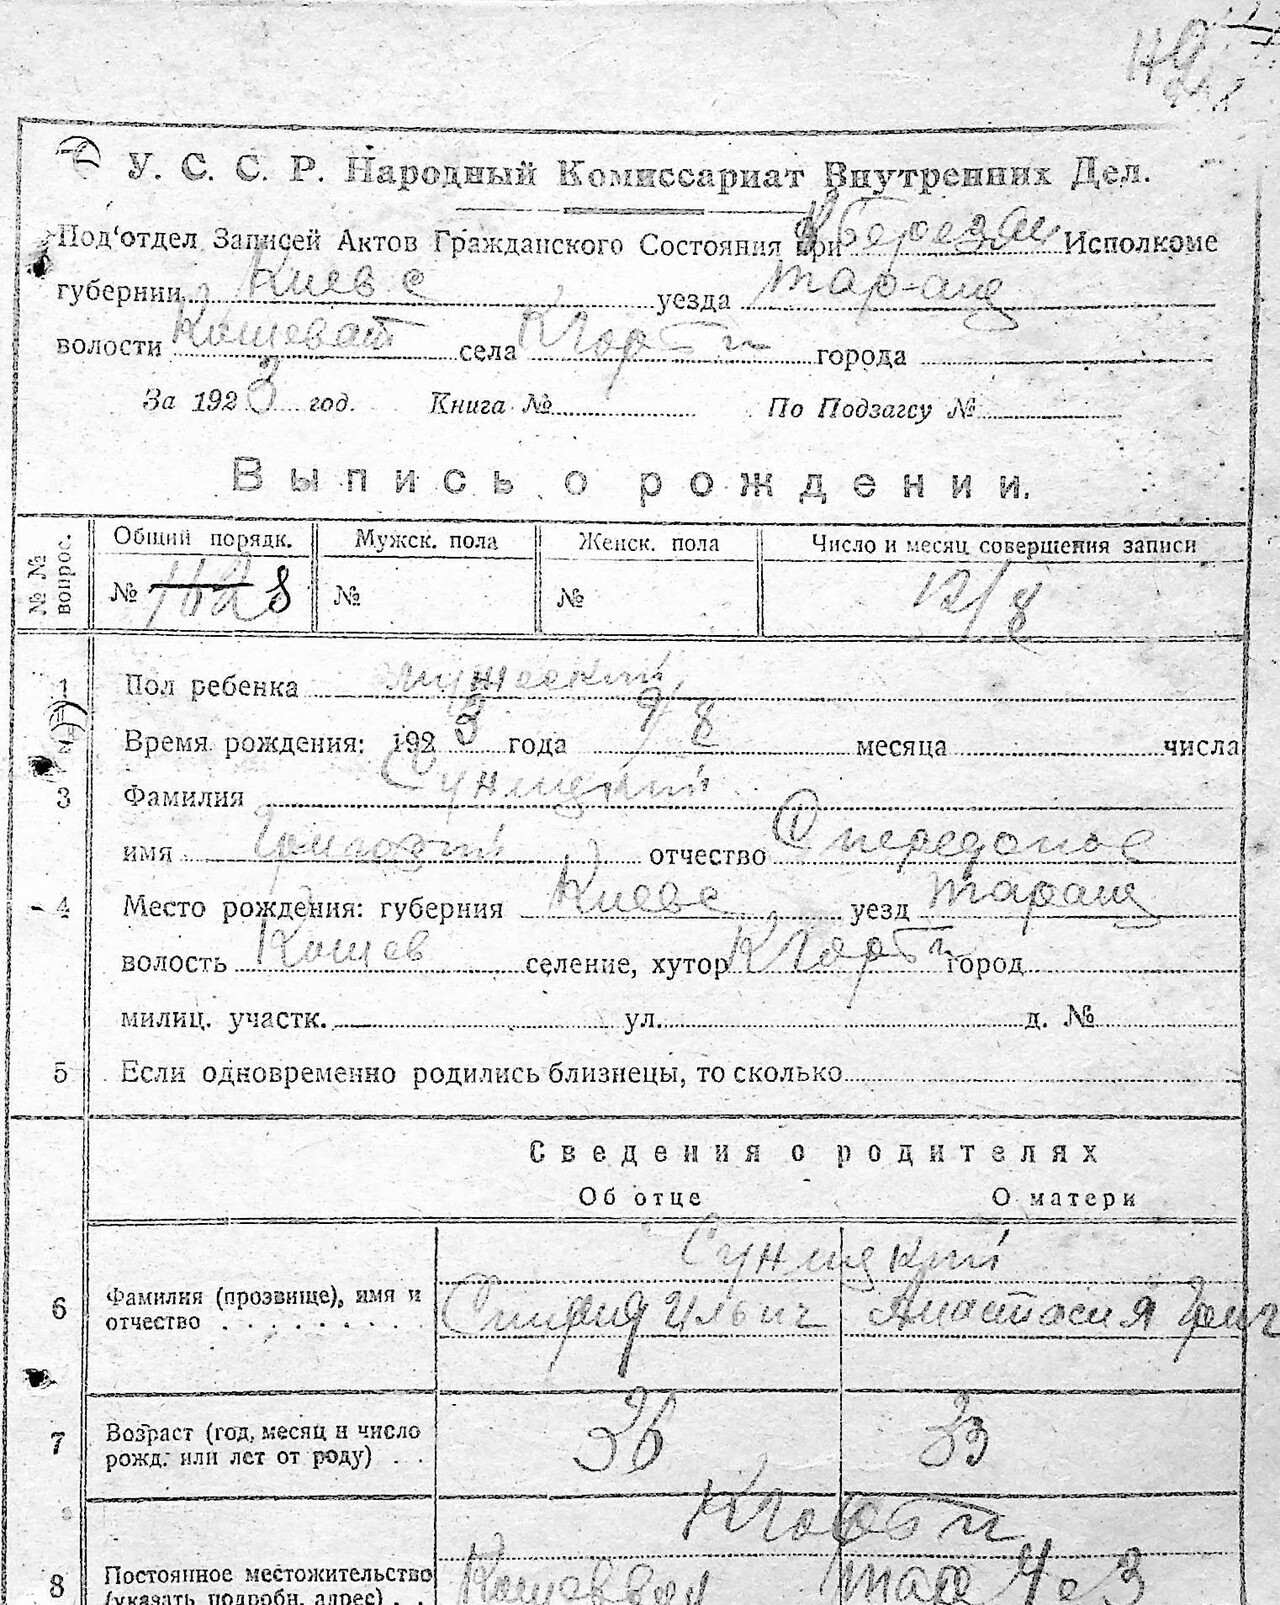 У. С. С. Р. Народный Комиссариат Внутренних Дел.
Под'отдел Записей Актов Гражданского Состояния при Исполкоме
губернии Киевс уезда Таращ
волости Кошеват села города
За 1923 год. Книга № По Подзагсу №
Выпись о рождении.
№ № вопрос. Общий порядк. Мужск. пола Женск. пола Число и месяц совершения записи
№ 8 № № 12/8
1 Пол ребенка мужеский
2 Время рождения: 1923 года 9/8 месяца числа
3 Фамилия Суницкий
имя отчество
4 Место рождения: губерния Киевс уезд Таращ
волость Кошев селение, хутор город
милиц. участк. ул. д. №
5 Если одновременно родились близнецы, то сколько
Сведения о родителях
Об отце О матери
Суницкий
6 Фамилия (прозвище), имя и отчество Спирид Ильич Анастасия
7 Возраст (год, месяц и число рожд. или лет от роду) 36 33
8 Постоянное местожительство (указать подробн. адрес)